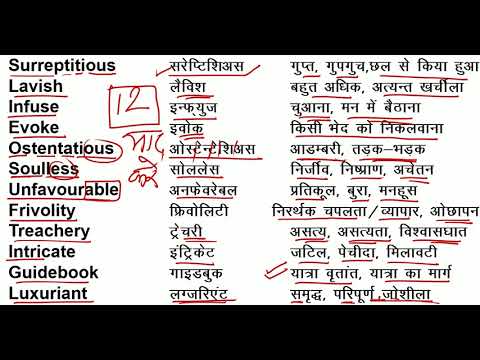 Surreptitious सरेप्टिशिअस गुप्त, गुपगुच,छल से किया हुआ
Lavish लैविश बहुत अधिक, अत्यन्त खर्चीला
Infuse इन्फ्युज चुआना, मन में बैठाना
12
Evoke इवोक किसी भेद को निकलवाना
Ostentatious ओस्टेन्टेशिअस आडम्बरी, तड़क-भड़क
याद
Soulless सोललेस निर्जीव, निष्प्राण, अचेतन
करे
Unfavourable अनफेवरेबल प्रतिकूल, बुरा, मनहूस
Frivolity फ्रिवोलिटी निरर्थक चपलता/व्यापार, ओछापन
Treachery ट्रेचरी असत्य, असत्यता, विश्वासघात
Intricate इंट्रिकेट जटिल, पेचीदा, मिलावटी
Guidebook गाइडबुक यात्रा वृतांत, यात्रा का मार्ग
Luxuriant लग्जरिएंट समृद्ध, परिपूर्ण ,जोशीला